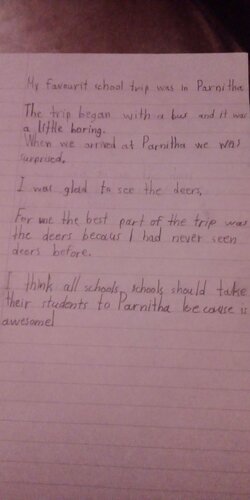 My favourit school trip was in Parnitha
The trip began with a bus and it was
a little boring.
When we arrived at Parnitha we was
surprised.
I was glad to see the deers.
For me the best part of the trip was
the deers becaus I had never seen
deers before.
I think all schools schools should take
their students to Parnitha because is
awesome!